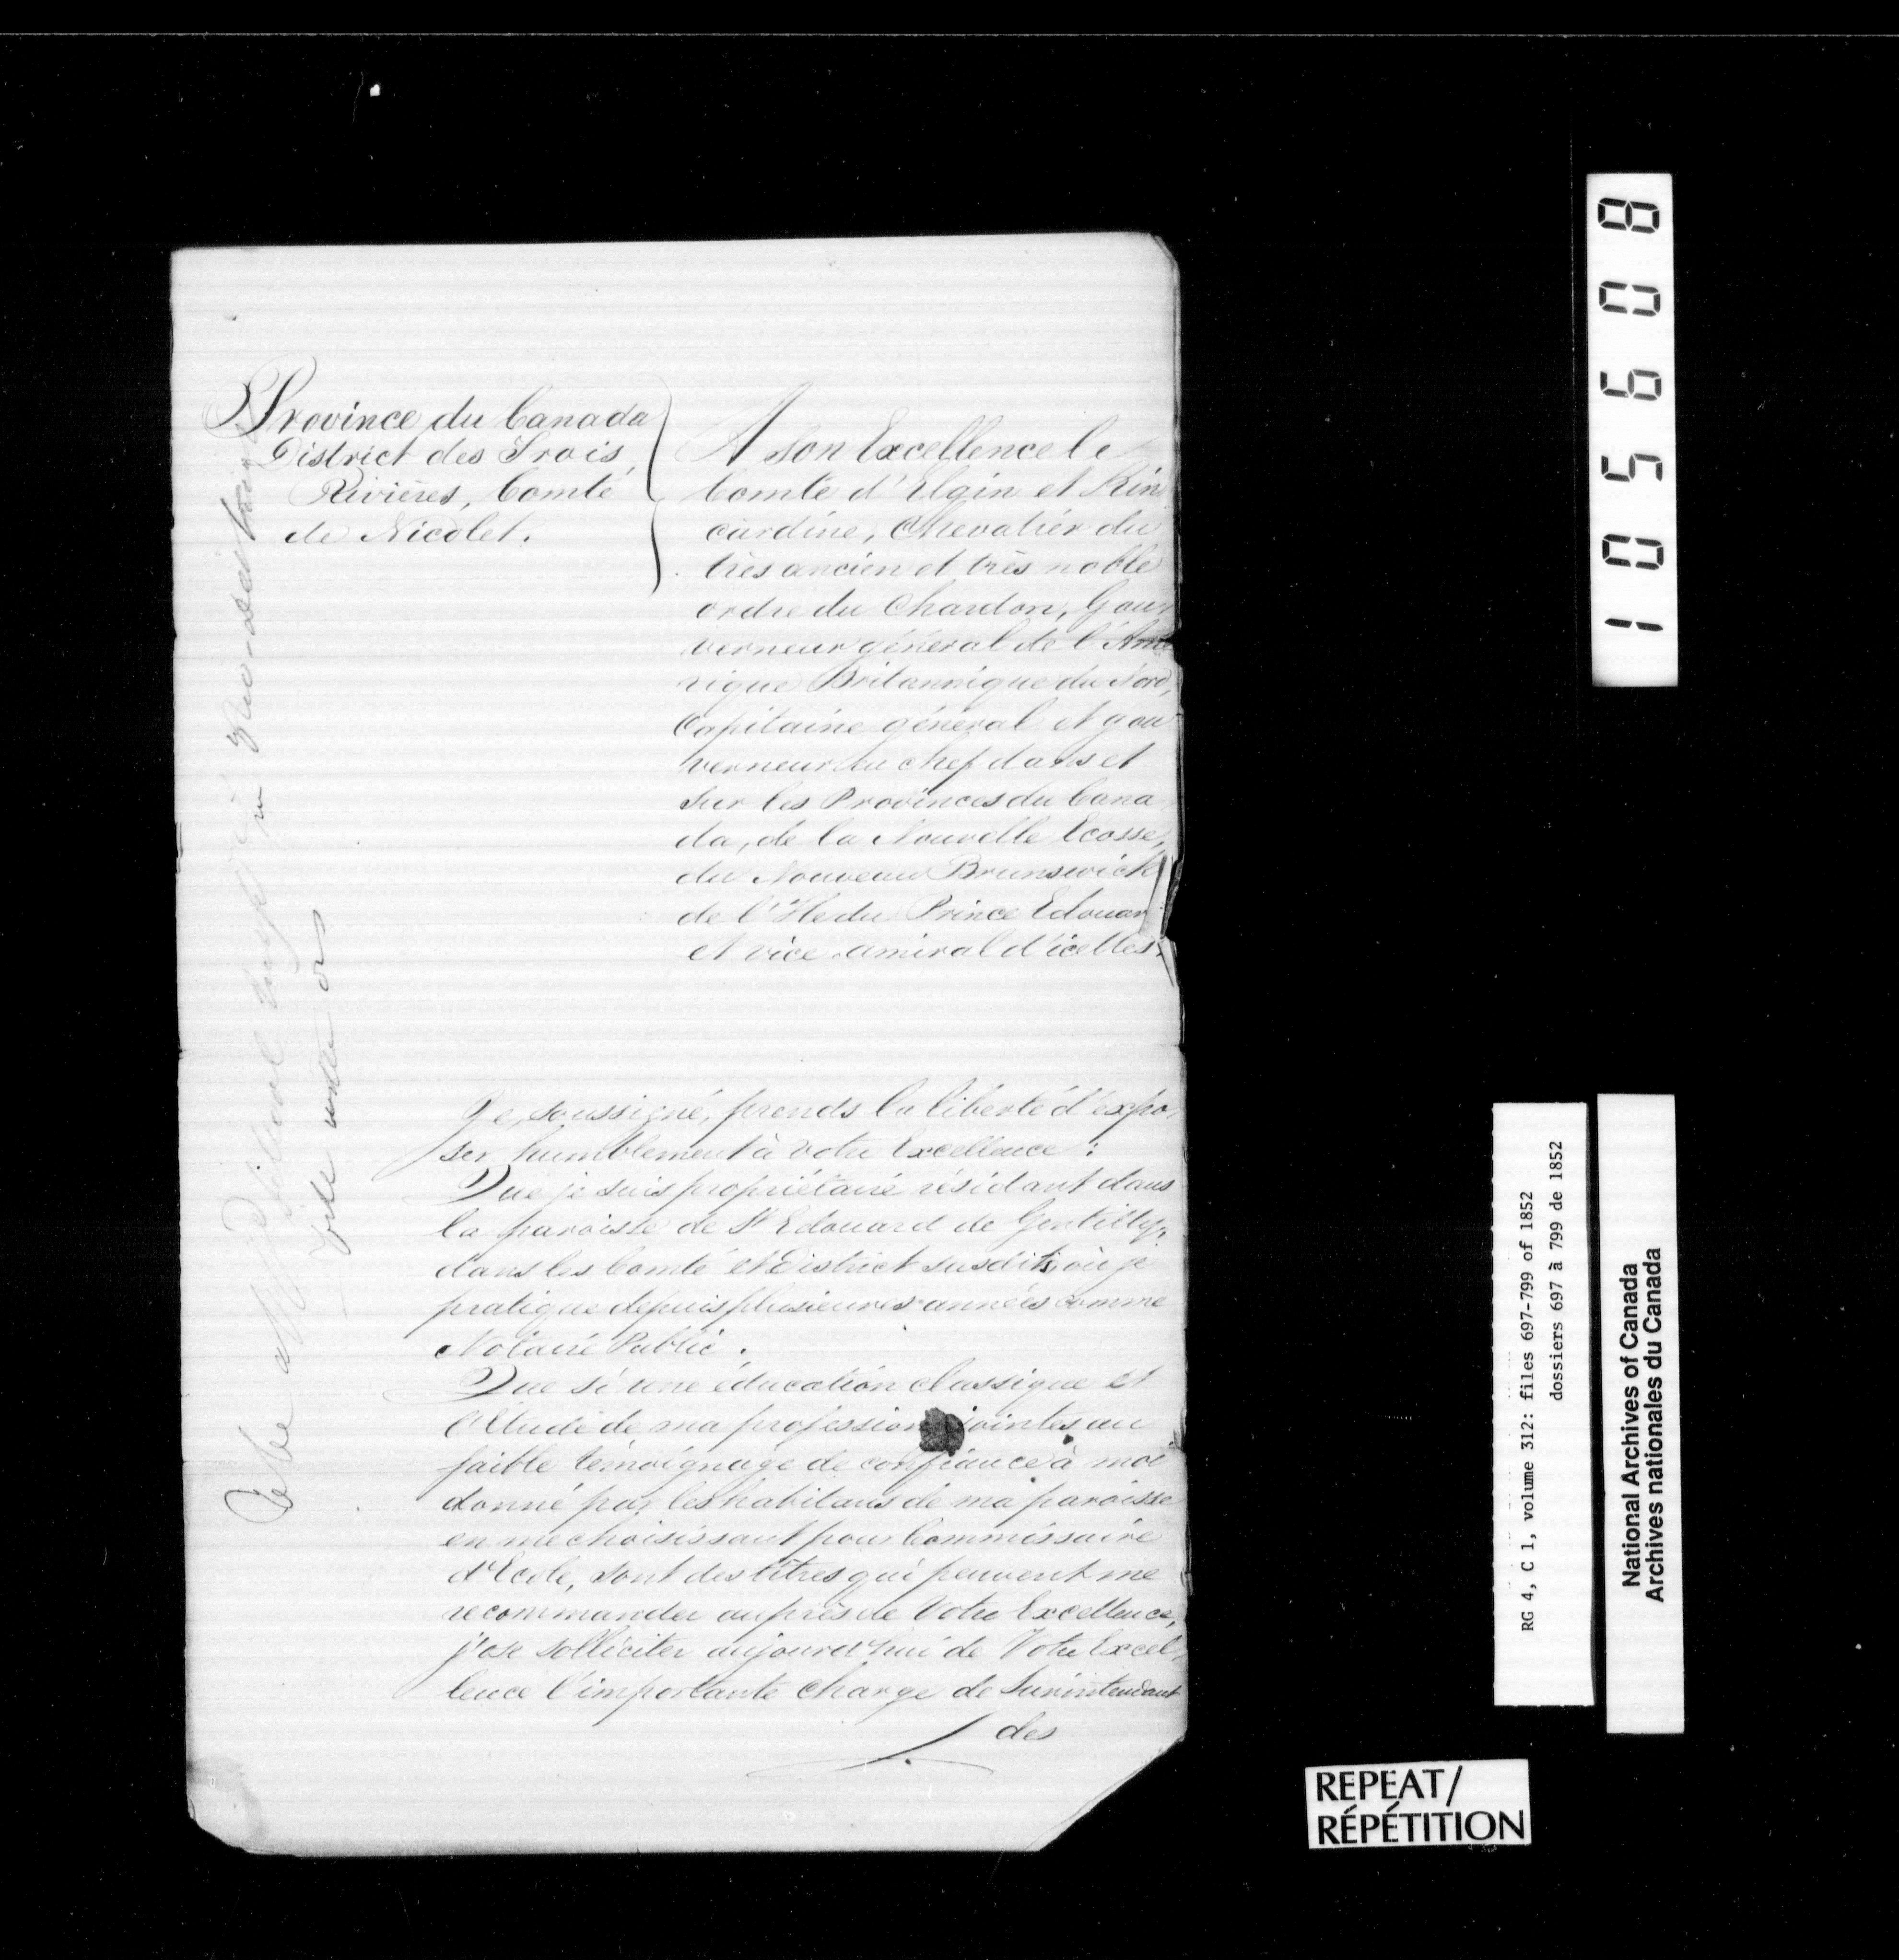 Province du Canada
District des Trois
Rivières, Comté
de Nicolet.
A son Excellence le
Comte d'Elgin et Kin
cardine, Chevalier du
très ancien et très noble
ordre du Chardon, Gou
verneur général de l'Amé
rique Britannique du Nord,
Capitaine général et gou
verneur en chef dans et
sur les Provinces du Cana
da, de la Nouvelle Ecosse,
du Nouveau Brunswick
de l'Ile du Prince Edouar
et vice-amiral d'icelles.
Je, soussigné, prends la liberté d'expo
ser humblement à votre Excellence :
Que je suis propriétaire résidant dans
la paroisse de St Edouard de Gentilly,
dans les Comté et District susdits, où je
pratique depuis plusieures années comme
Notaire Public.
Que si une éducation classique et
l'étude de ma profession jointes au
faible témoignage de confiance à moi
donné par les habitans de ma paroisse
en me choisissant pour Commissaire
d'Ecole, sont des titres qui peuvent me
recommander auprès de Votre Excellence,
j'ose solliciter aujourd'hui de Votre Excel
lence l'importante charge de Surintendant
des
105608
RG 4, C 1, volume 312: files 697-799 of 1852
dossiers 697 à 799 de 1852
National Archives of Canada
Archives nationales du Canada
REPEAT/
RÉPÉTITION